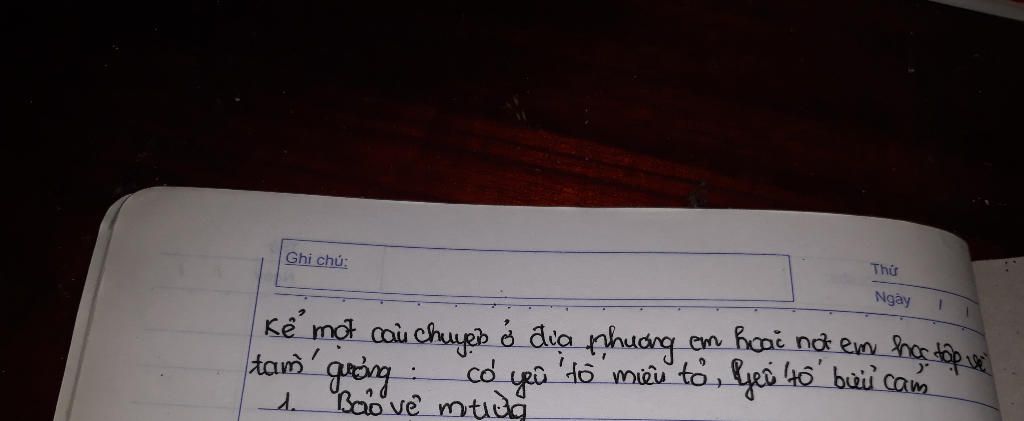 Ghi chú:
Thứ
Ngày / /
Kể một câu chuyện ở địa phương em hoặc nơi em học tập về
tấm gương: có yếu tố miêu tả, yếu tố biểu cảm
1. Bảo vệ mtrường